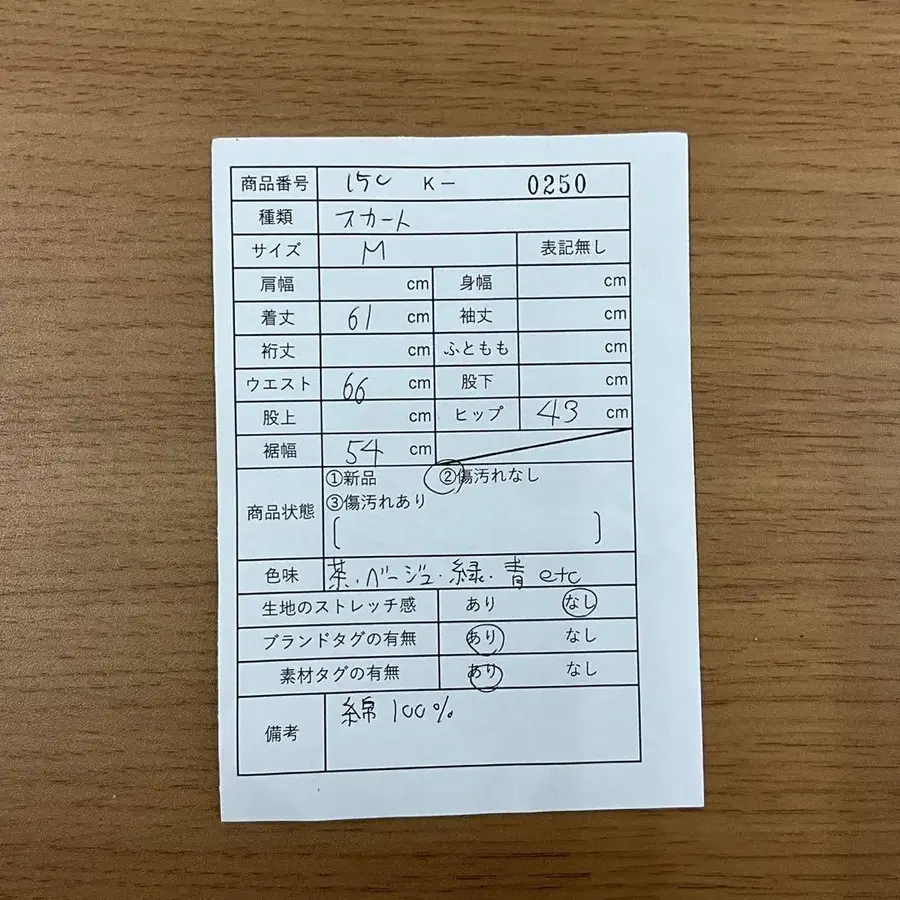 商品番号 150 K- 0250
種類 スカート
サイズ M 表記無し
肩幅 cm 身幅 cm
着丈 61 cm 袖丈 cm
裄丈 cm ふともも cm
ウエスト 66 cm 股下 cm
股上 cm ヒップ 43 cm
裾幅 54 cm
商品状態 ①新品 ②傷汚れなし
③傷汚れあり
[ ]
色味 茶・ベージュ・緑・青 etc
生地のストレッチ感 あり なし
ブランドタグの有無 あり なし
素材タグの有無 あり なし
備考 綿 100%